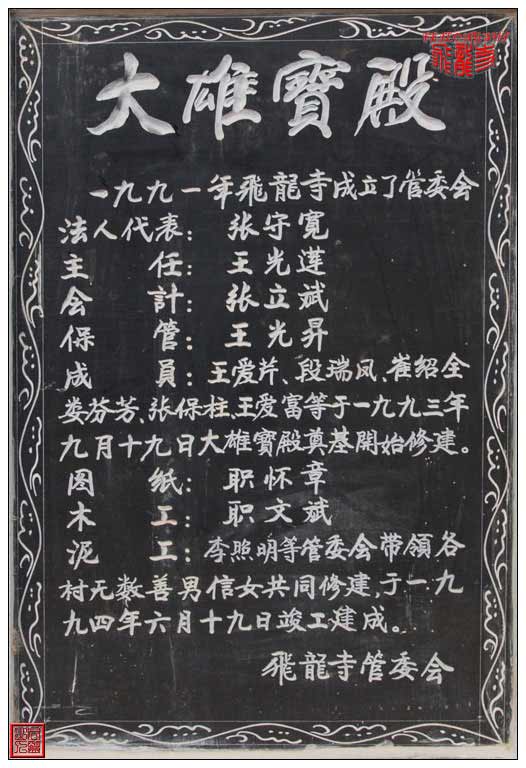 飛龍寺
大雄寶殿
一九九一年飛龍寺成立了管委会
法人代表：张守寬
主任：王光莲
会計：张立斌
保管：王光昇
成員：王爱芹、段瑞凤、崔绍全
娄芬芳、张保柱、王爱富等于一九九三年
九月十九日大雄寶殿奠基開始修建。
图紙：职怀章
木工：职文斌
泥工：李照明等管委会带領各
村无数善男信女共同修建，于一九
九四年六月十九日竣工建成。
飛龍寺管委会